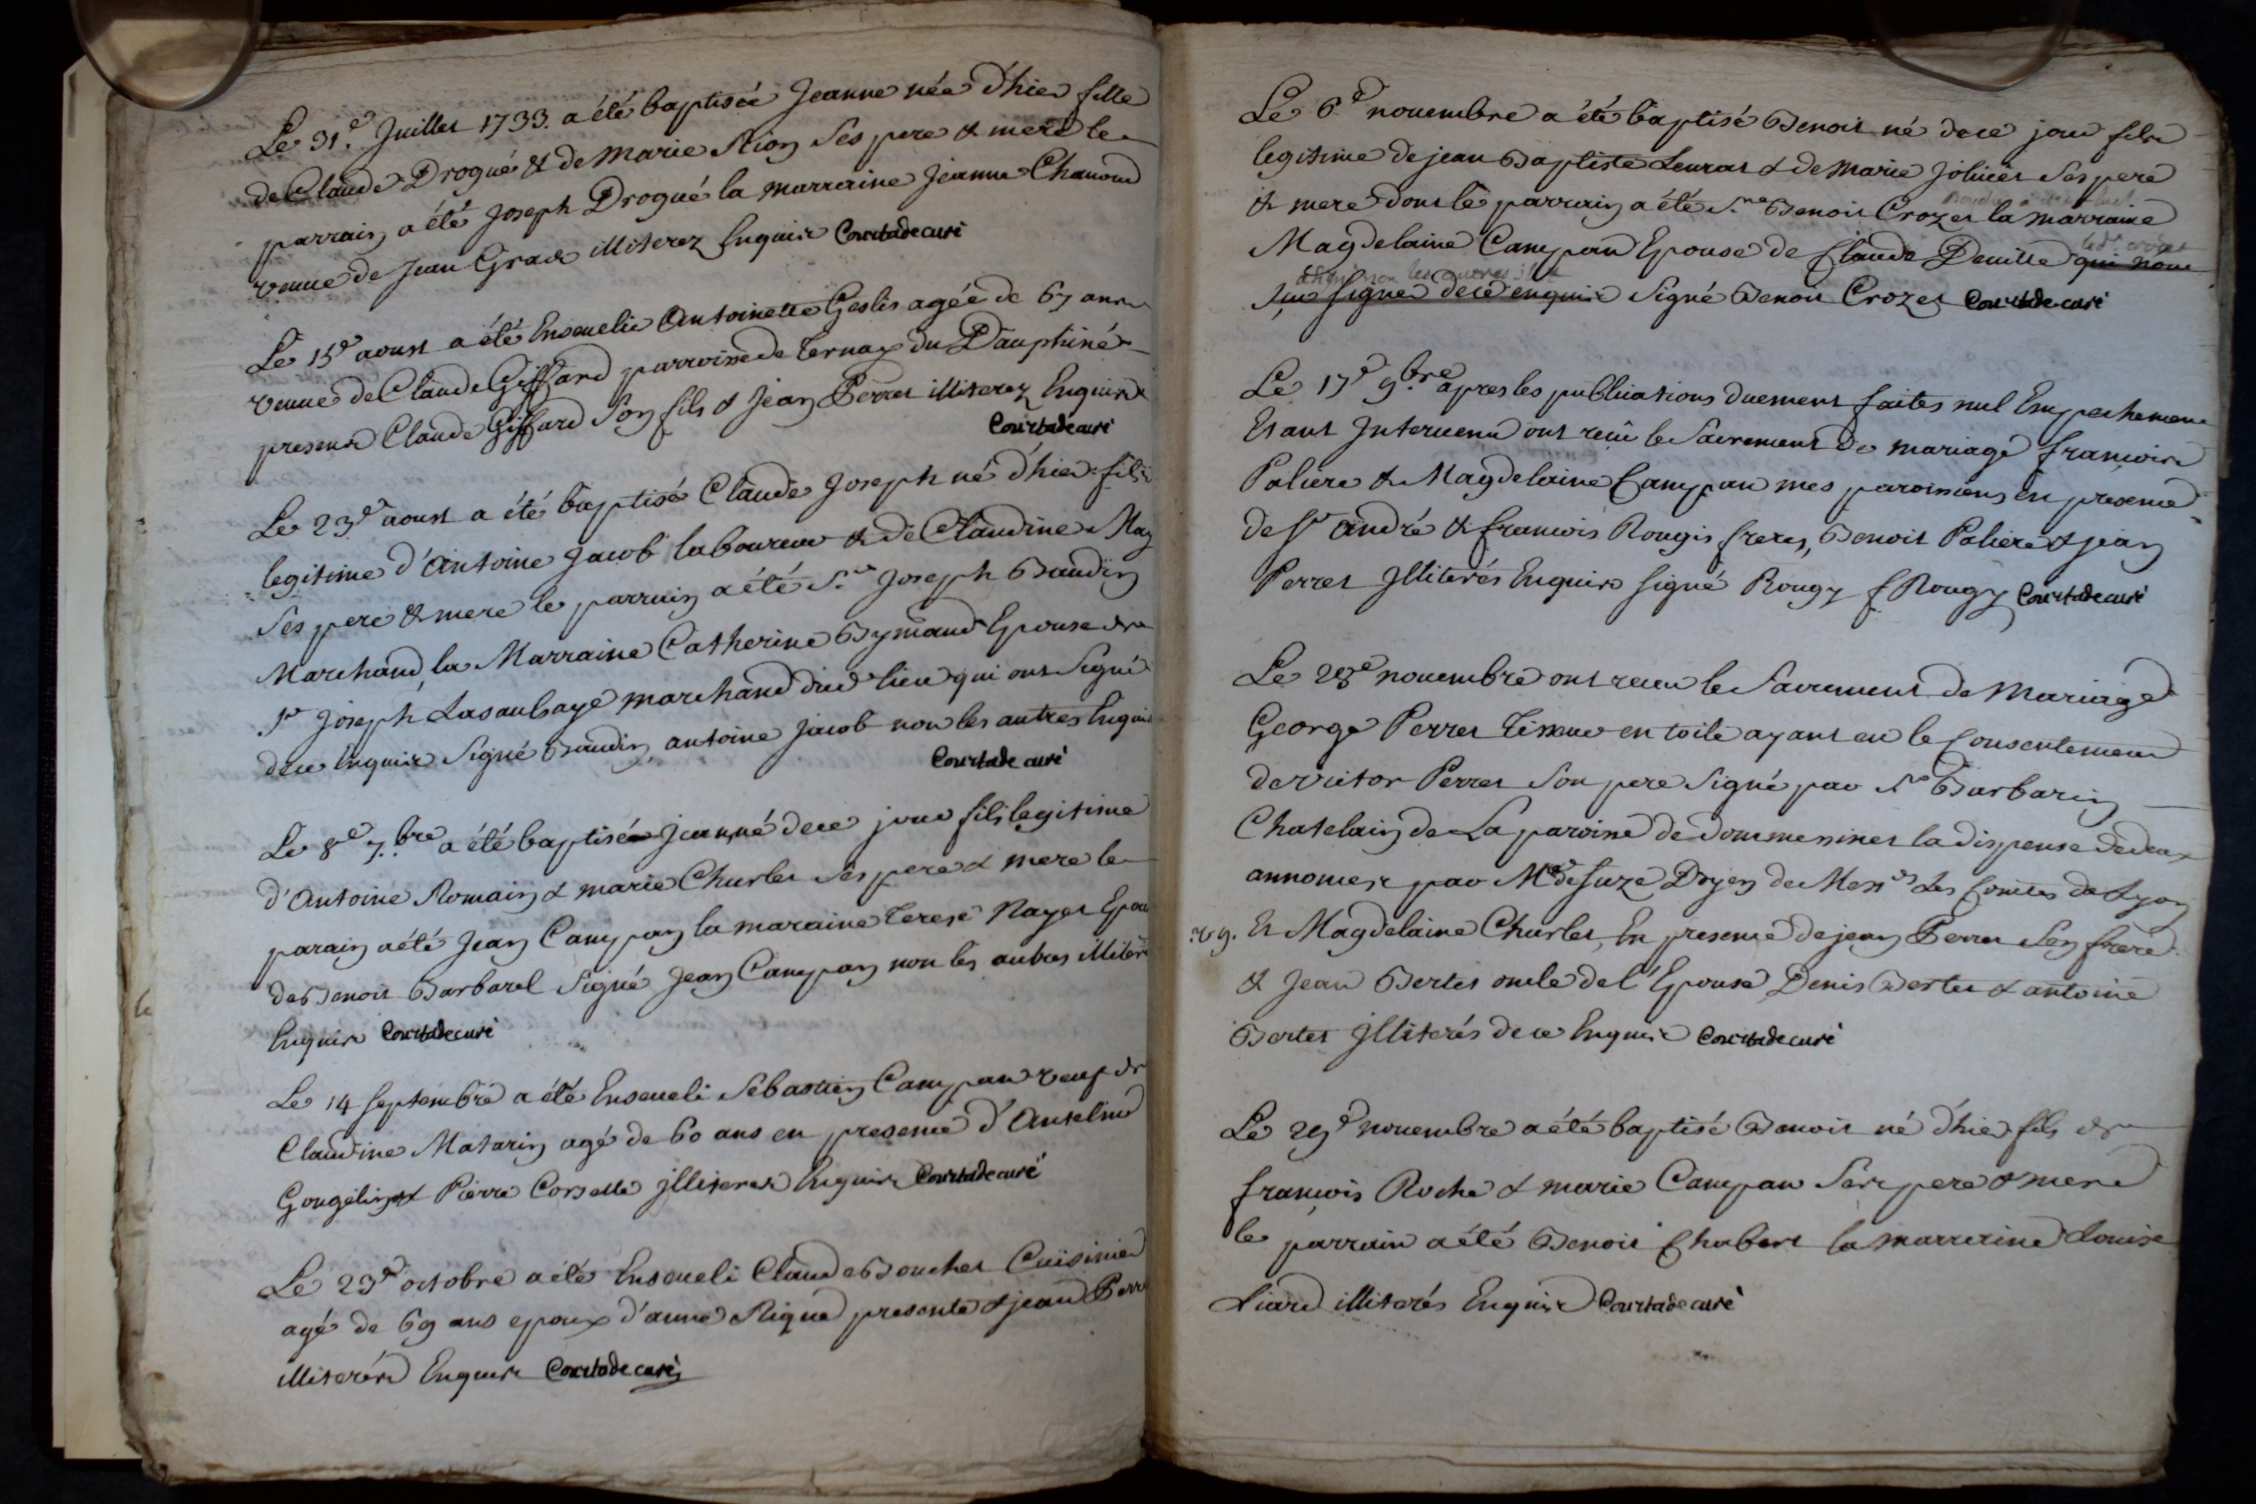 Le 31e. Juillet 1733. a été baptisée Jeanne née d'hier fille
de Claude Drogué & de Marie Rion Ses pere & mere le
parrain a été Joseph Drogué la marreine Jeanne Chanoud
venue de Jean Grade illiterez Enquise Courtade curé
Le 15e aoust a été Enseuelie Antoinette Geslis agée de 67 ans
venue de Claude Giffard parroisse de Ternay du Dauphiné
presens Claude Giffard son fils & Jean Perret illiterez Enquise
Courtade curé
Le 23e aoust a été baptisé Claude Joseph né d'hier fils
legitime d'Antoine Jacob laboureur & de Claudine May
Ses pere & mere le parrain a été Sr Joseph Baudin
Marchand, la Marraine Catherine Bymand Epouse de
Sr Joseph Lasausaye marchand dud lieu qui ont Signé
de ce Enquise Signé Baudin antoine Jacob non les autres Enquis
Courtade curé
Le 8e 7.bre a été baptisé Jean, né de ce jour fils legitime
d'Antoine Romain & marie Charles Ses pere & mere le
parain a été Jean Campan la maraine Terese Nayet Epou
de Benoit Barbarel Signé Jean Campan non les autres illiter
Enquise Courtade curé
Le 14 septembre a été Enseueli Sebastien Campan veuf de
Claudine Matarin agé de 60 ans en presence d'Anselme
Gougelin & Pierre Corselle jlliteres Enquise Courtade curé
Le 23e octobre a été Enseueli Claude Bouchet Cuisinier
agé de 69 ans epoux d'anne Rique presente & jean Perre
illiterés Enquise Courtade curé
Le 6e nouembre a été baptisé Benoit né de ce jour fils
legitime de jean Baptiste Leurat & de Marie Joliuet Ses pere
& mere dont le parrain a été Benoit Crozet la marraine
Magdelaine Campan Epouse de Claude Deuille led. crozet qui nous
non les autres
signer de ce enquise Signé Benoit Crozet Courtade curé
Le 17e 9.bre apres les publications duement faites nul Empechement
Etant Interuenu ont reçû le Sacrement de mariage françoise
Paliere & Magdelaine Campan mes paroissiens en presence
de Sr andré & francois Rougis freres, Benoit Paliere & jean
Perret Jlliterés Enquise signé Rougy f Rougy Courtade curé
Le 28e nouembre ont receu le Sacrement de Mariage
George Perret Tisseur en toile ayant eu le Consentement
de victor Perret Son pere Signé par Sr Barbarin
Chatelain de La paroisse de Dommessinet la dispense de deux
annonces par Mr de Suze Doyen de Messrs les Comtes de Lyon
Et Magdelaine Charles, En presence de jean Perret Son frere
& Jean Bertet oncle de l'Epouse Denis Bertet & antoine
Bertet jlliterés de ce Enquise Courtade curé
Le 29e nouembre a été baptisé Benoit né d'hier fils de
françois Roche & marie Campan Ses pere & mere
le parrain a été Benoit Chabert la marreine Louise
Liard illiterés Enquise Courtade curé